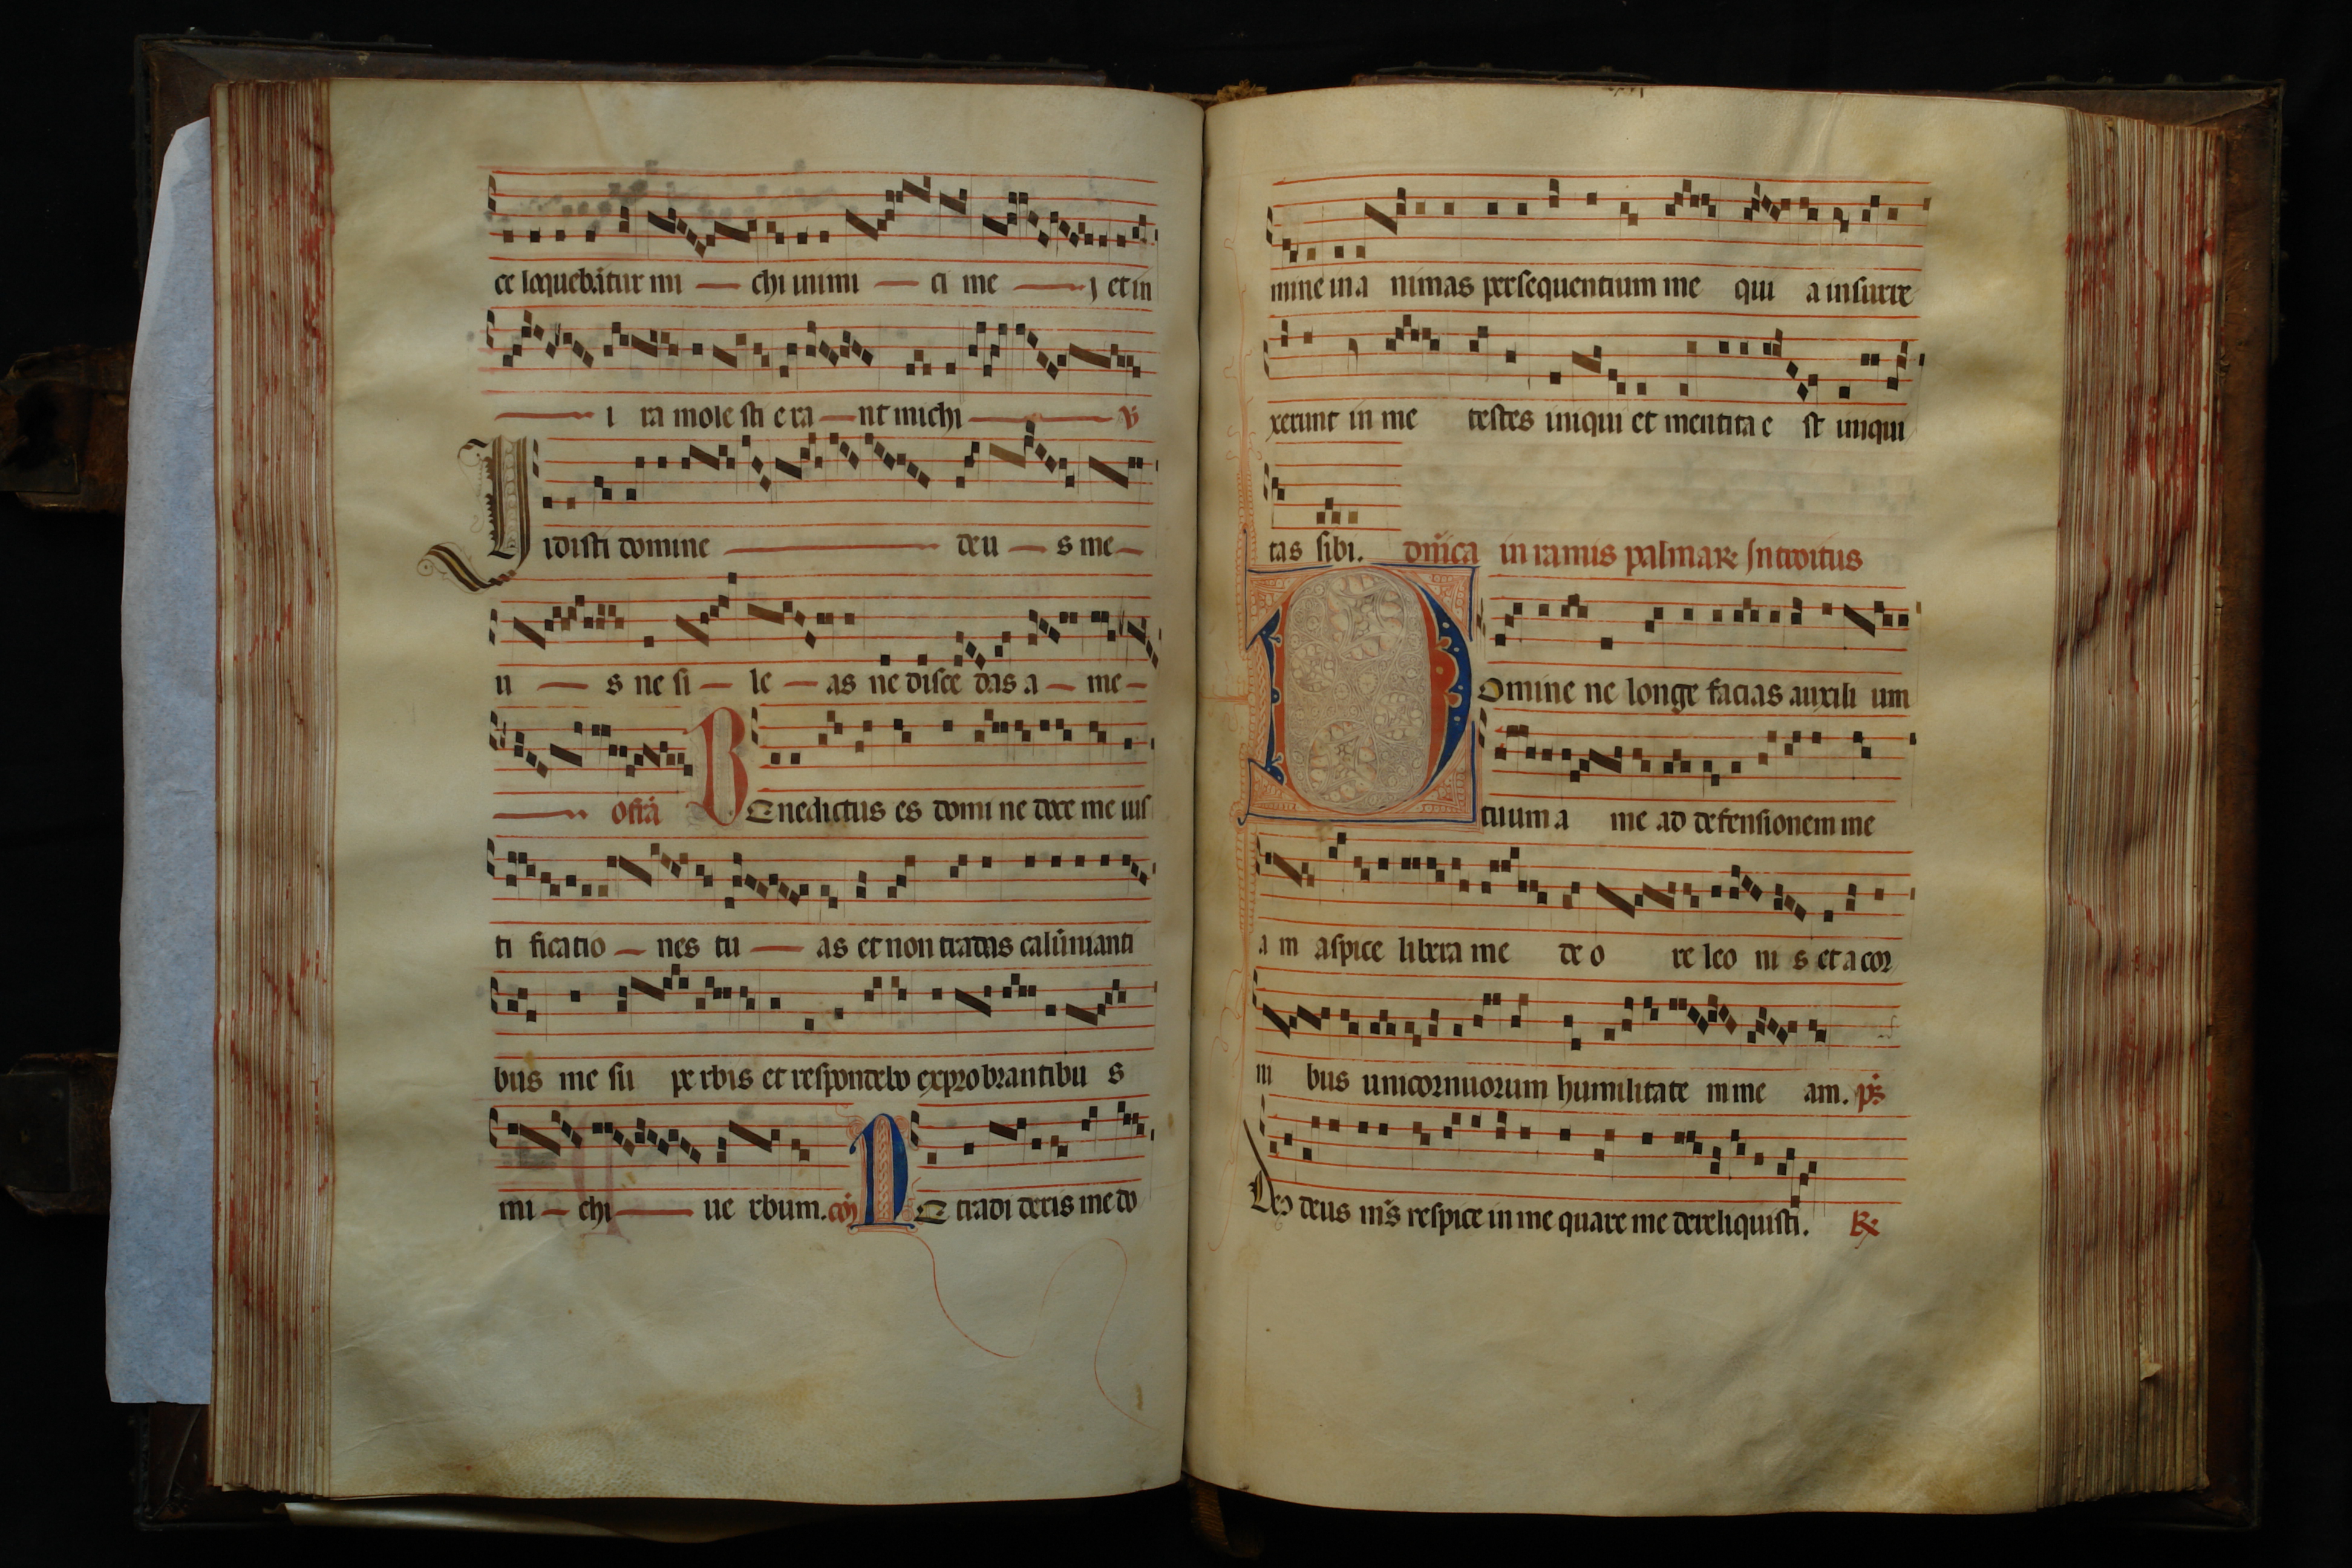 ce loquebãtur mi — chi inimi — ci me — j et in
— i ra mole sti e ra — nt michi — v̾
Vidisti domine — deu — s me —
u — s ne si — le — as ne disce das a — me —
— offã Benedictus es domi ne doce me ius
ti ficatio — nes tu — as et non tradas calũnianti
bus me su pe rbis et respondebo exprobrantibu s
mi — chi — ue rbum. cõ Ne tradi deris me do
mine in a nimas persequentium me qui a insurre
xerunt in me testes iniqui et mentita e st iniqui
tas sibi. dñica in ramis palmaꝝ Introitus
Domine ne longe facias auxili um
tuum a me ad defensionem me
a m aspice libera me de o re leo ni s et a cor
ni bus unicornuorum humilitate m me am. ps̃
Deus deus m̃s respice in me quare me dereliquisti. ℟